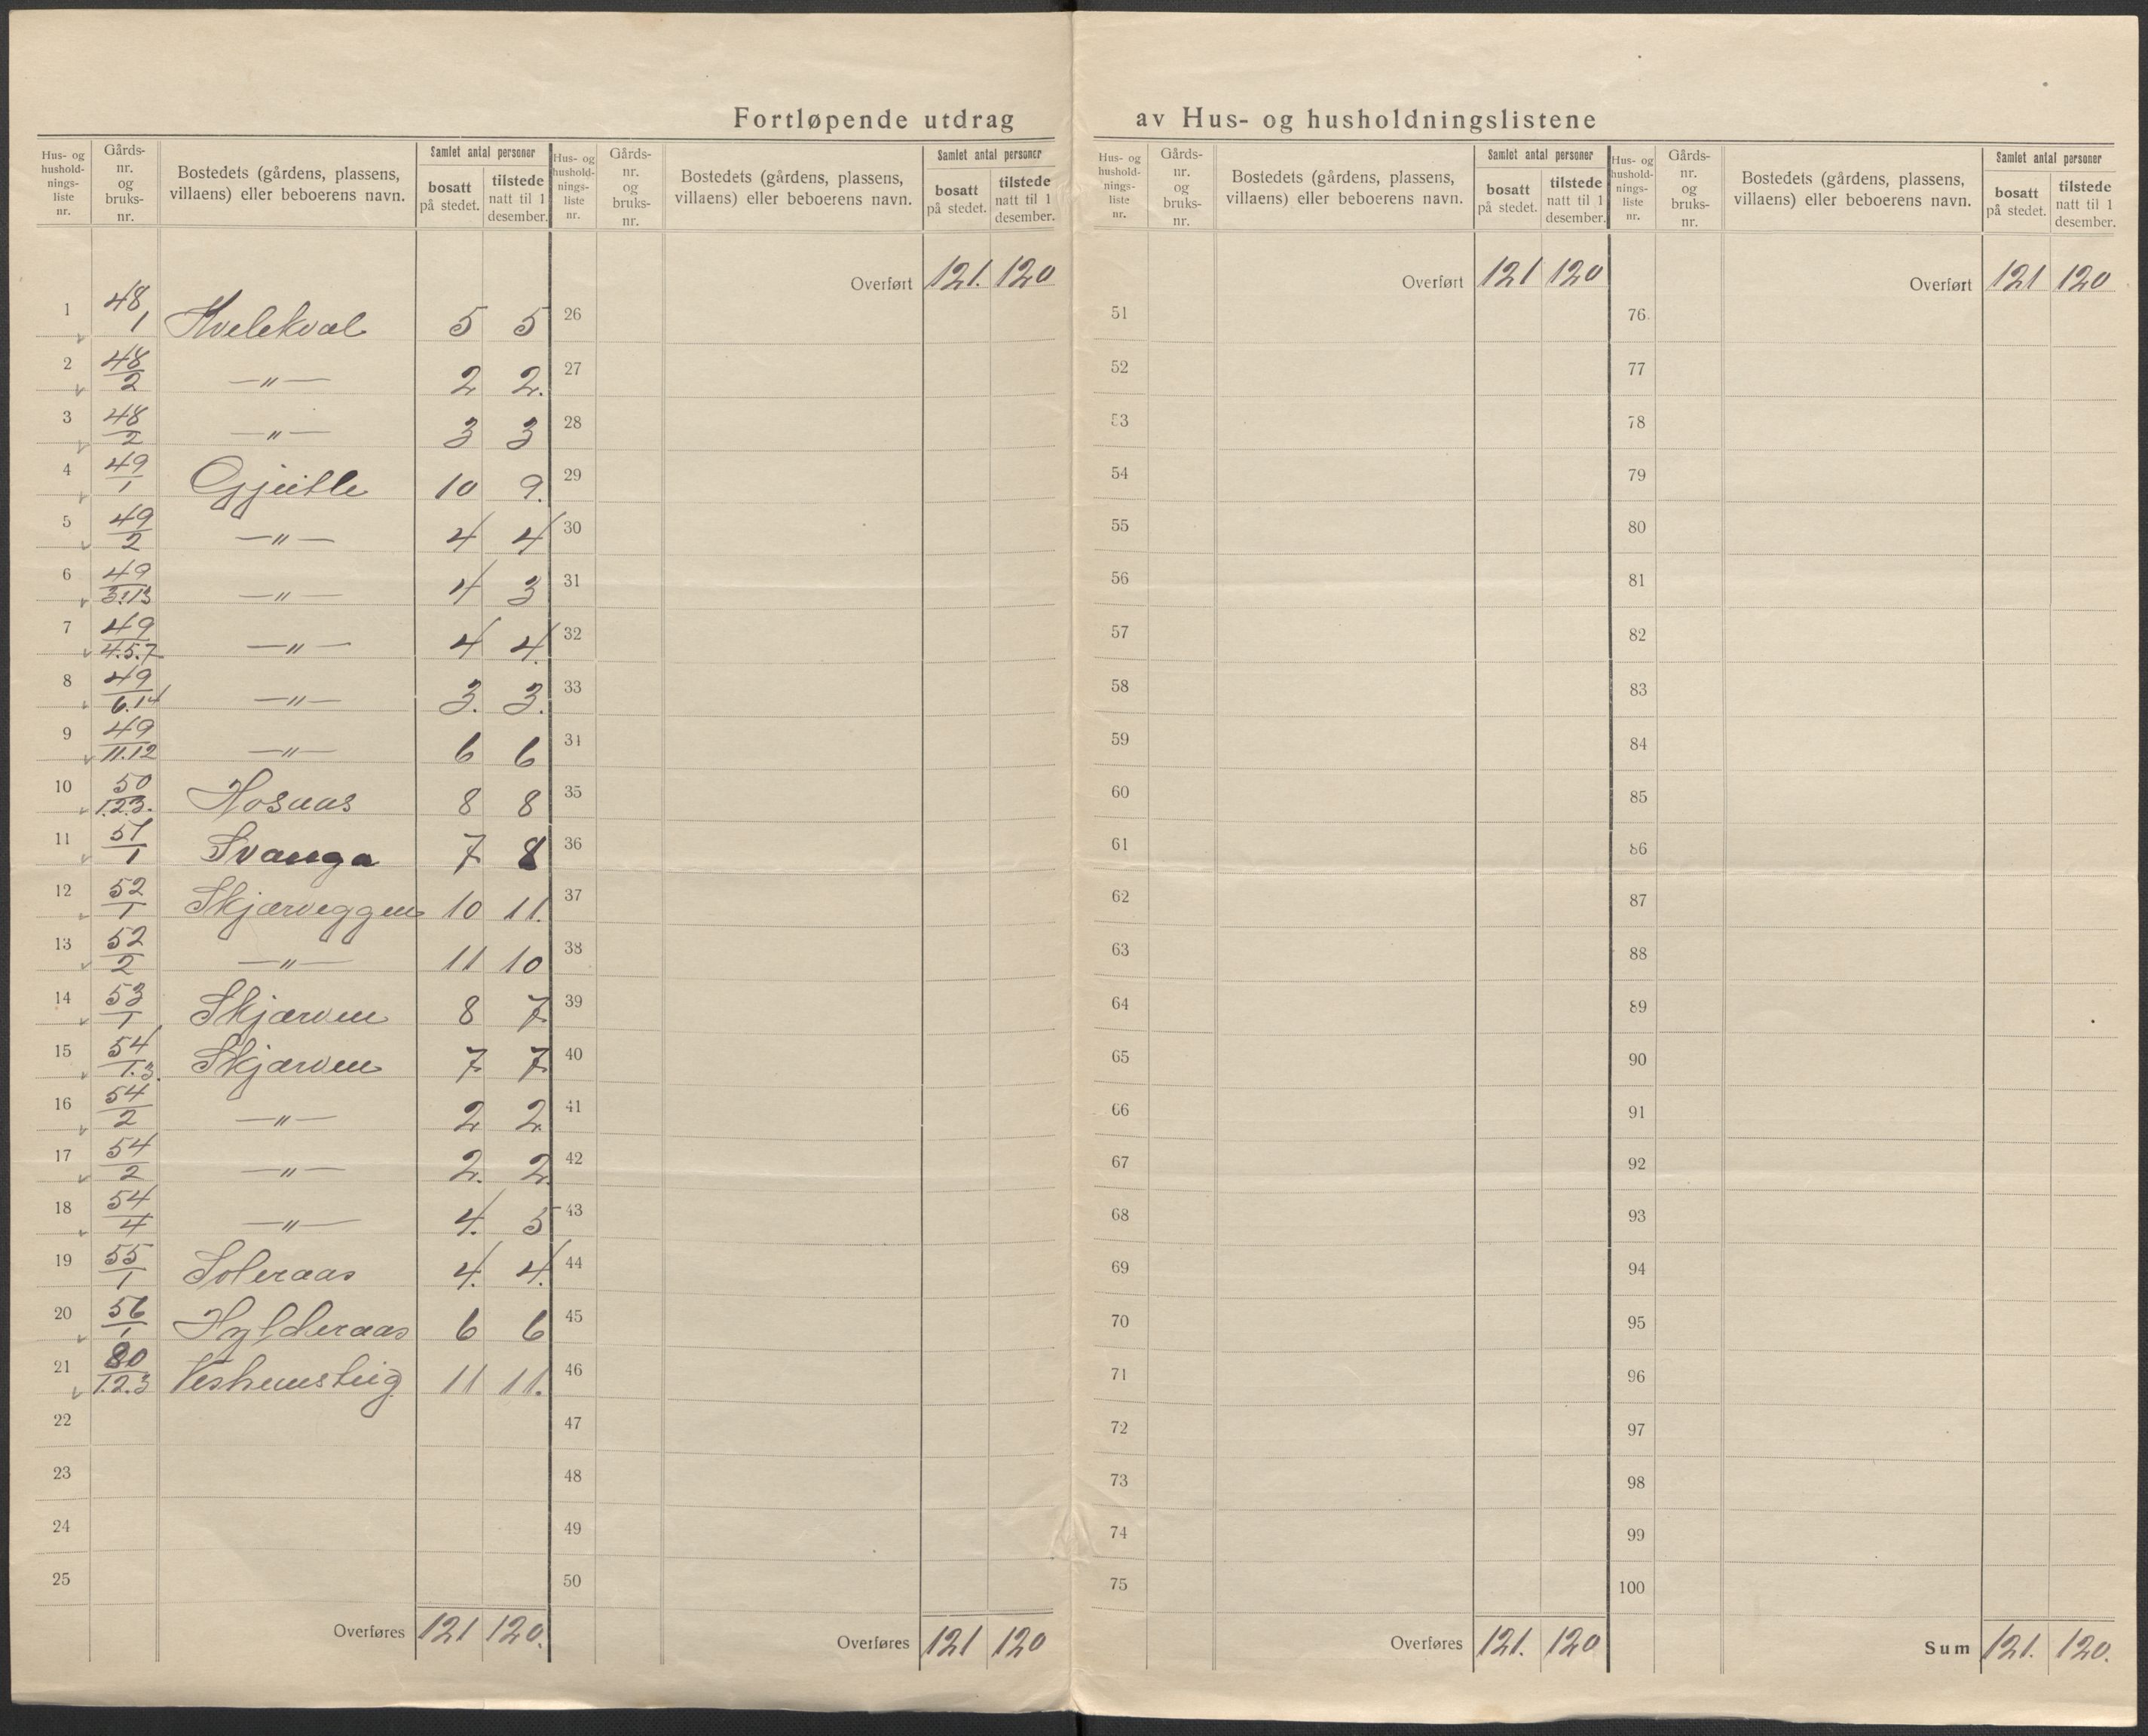 Fortløpende utdrag av Hus- og husholdningslistene
Hus- og hushold-nings-liste nr. | Gårds-nr. og bruks-nr. | Bostedets (gårdens, plassens, villaens) eller beboerens navn. | Samlet antal personer bosatt på stedet. | tilstede natt til 1 desember.
1 48/1 Kvelekval 5 5
2 48/2 —"— 2 2.
3 48/2 —"— 3 3
4 49/1 Gjeitle 10 9.
5 49/2 —"— 4 4
6 49/3.13 —"— 4 3
7 49/4.5.7 —"— 4 4.
8 49/6.14 —"— 3. 3.
9 49/11.12 —"— 6 6
10 50/1.2.3. Hosaas 8 8
11 51/1 Svanga 7 8
12 52/1 Skjærveggen 10 11.
13 52/2 —"— 11 10
14 53/1 Skjærven 8 7
15 54/1.3. Skjærven 7 7
16 54/2 —"— 2 2
17 54/2 —"— 2. 2
18 54/4 —"— 4. 5
19 55/1 Soleraas 4. 4.
20 56/1 Hylderaas 6 6
21 80/1.2.3 11 11.
22
23
24
25
Overføres 121 120.
Hus- og hushold-nings-liste nr. | Gårds-nr. og bruks-nr. | Bostedets (gårdens, plassens, villaens) eller beboerens navn. | Samlet antal personer bosatt på stedet. | tilstede natt til 1 desember.
Overført 121. 120
26
27
28
29
30
31
32
33
34
35
36
37
38
39
40
41
42
43
44
45
46
47
48
49
50
Overføres 121 120
Hus- og hushold-nings-liste nr. | Gårds-nr. og bruks-nr. | Bostedets (gårdens, plassens, villaens) eller beboerens navn. | Samlet antal personer bosatt på stedet. | tilstede natt til 1 desember.
Overført 121 120
51
52
53
54
55
56
57
58
59
60
61
62
63
64
65
66
67
68
69
70
71
72
73
74
75
Overføres 121. 120
Hus- og hushold-nings-liste nr. | Gårds-nr. og bruks-nr. | Bostedets (gårdens, plassens, villaens) eller beboerens navn. | Samlet antal personer bosatt på stedet. | tilstede natt til 1 desember.
Overført 121 120
76.
77
78
79
80
81
82
83
84
85
86
87
88
89
90
91
92
93
94
95
96
97
98
99
100
Sum 121. 120.